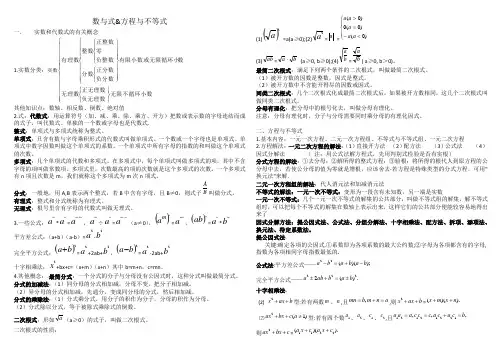 数与式&方程与不等式
一、 实数和代数式的有关概念
1.实数分类：实数
有理数
整数
正整数
零
负整数
分数
正分数
负分数
有限小数或无限循环小数
无理数
正无理数
负无理数
无限不循环小数
其他知识点：数轴、相反数、倒数、绝对值
2.式：代数式：用运算符号（加、减、乘、除、乘方、开方）把数或表示数的字母连结而成
的式子，叫代数式。单独的一个数或字母也是代数式.
整式：单项式与多项式统称为整式。
单项式：只含有数与字母乘积形式的代数式叫做单项式。一个数或一个字母也是单项式。单
项式中数字因数叫做这个单项式的系数。一个单项式中所有字母的指数的和叫做这个单项式
的次数。
多项式：几个单项式的代数和多项式。在多项式中，每个单项式叫做多项式的项，其中不含
字母的项叫做常数项。多项式里，次数最高的项的次数就是这个多项式的次数。一个多项式
有 n 项且次数是 m，我们就称这个多项式为 m 次 n 项式。
分式：一般地，用 A,B 表示两个整式，若 B 中含有字母，且 B≠0，则式子 A/B 叫做分式。
有理式：整式和分式统称为有理式。
无理式：根号里含有字母的代数式叫做无理式。
平方差公式：(a+b)(a-b)=a²-b²
十字相乘法：x²+bx+c=(x+m)(x+n) 其中 b=m+n，c=mn。
4.其他概念：最简分式：一个分式的分子与分母没有公因式时，这种分式叫做最简分式。
分式的加减法：（1）同分母的分式相加减，分母不变，把分子相加减。
（2）异分母的分式相加减，先通分，变成同分母的分式，然后相加减。
分式的乘除法：（1）分式乘分式，用分子的积作为分子、分母的积作为分母。
（2）分式除以分式，等于被除式乘除式的倒数。
二次根式：形如√a（a≥0）的式子，叫做二次根式。
二次根式的性质：
(1)(√a)²=a(a≥0);(2)√a²=|a|= a(a>0) 0(a=0) -a(a<0)
(3)√ab=√a·√b (a≥0, b≥0);(4)√(a/b)=√a/√b (a≥0, b>0)。
最简二次根式：满足下列两个条件的二次根式，叫做最简二次根式。
（1）被开方数的因数是整数，因式是整式。
（2）被开方数中不含能开得尽的因数或因式。
同类二次根式：几个二次根式化成最简二次根式后，如果被开方数相同，这几个二次根式叫
做同类二次根式。
分母有理化：把分母中的根号化去，叫做分母有理化。
注意：分母有理化时，分子与分母需要同时乘分母的有理化因式。
二、方程与不等式
1.基本内容：一元一次方程、二元一次方程组、不等式与不等式组、一元二次方程
2.方程解法：一元二次方程的解法：（1）直接开方法 （2）配方法 （3）公式法 （4）
因式分解法
分式方程的解法：①去分母；②解所得的整式方程；③验根：将所得的根代入到最初方程的公
二元一次方程组的解法：代入消元法和加减消元法
不等式的解法：一元一次不等式：变形为一次的含有未知数，另一端是实数
一元一次不等式：几个一元一次不等式的解集的公共部分，叫做不等式组的解集。解不等式
组时，可以把每个不等式的解集在数轴上表示出来，这样它们的公共部分便能很容易地得出
来了
因式分解方法：提公因式法、公式法、分组分解法、十字相乘法、配方法、拆项、添项法、
换元法、待定系数法。
提公因式法
关键:确定各项的公因式;①系数即为各项系数的最大公约数②字母为各项都含有的字母，
指数为各项相同字母指数最低的。
公式法:平方差公式——a²-b²=(a+b)(a-b);
完全平方公式——a²±2ab+b²=(a±b)².
十字相乘法